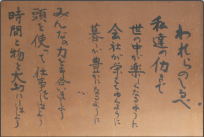 われらのしるべ
私達の働きで
世の中が楽しくなるように
会社が栄えてゆくように
暮しが豊かになるように
みんなの力を合せましょう
頭を使って仕事をしましょう
時間と物を大切にしましょう